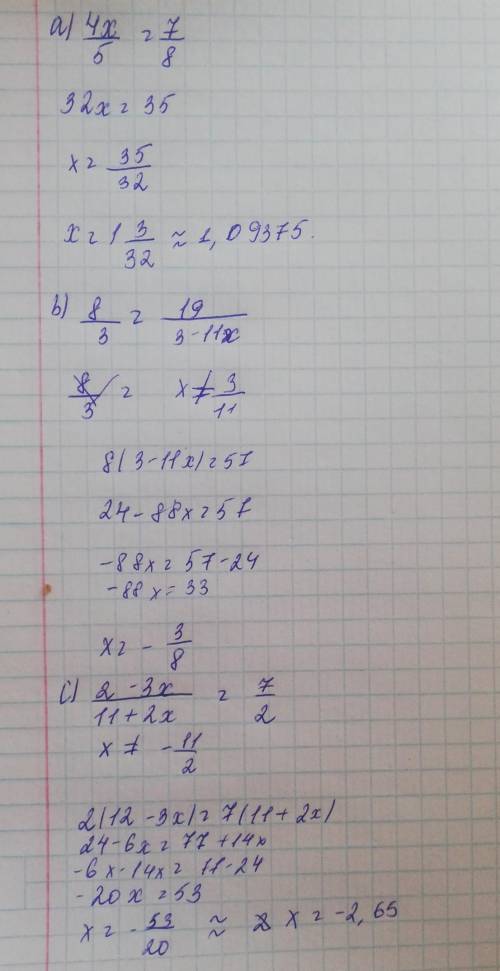 a) 4x/5 = 7/8
32x = 35
x = 35/32
x = 1 3/32 ≈ 1,09375.
b) 8/3 = 19/(3-11x)
8/3 = x ≠ 3/11
8(3-11x) = 57
24-88x = 57
-88x = 57-24
-88x = 33
x = -3/8
c) (2-3x)/(11+2x) = 7/2
x ≠ -11/2
2(12-3x) = 7(11+2x)
24-6x = 77+14x
-6x-14x = 11-24
-20x = 53
x = -53/20 ≈ x = -2,65